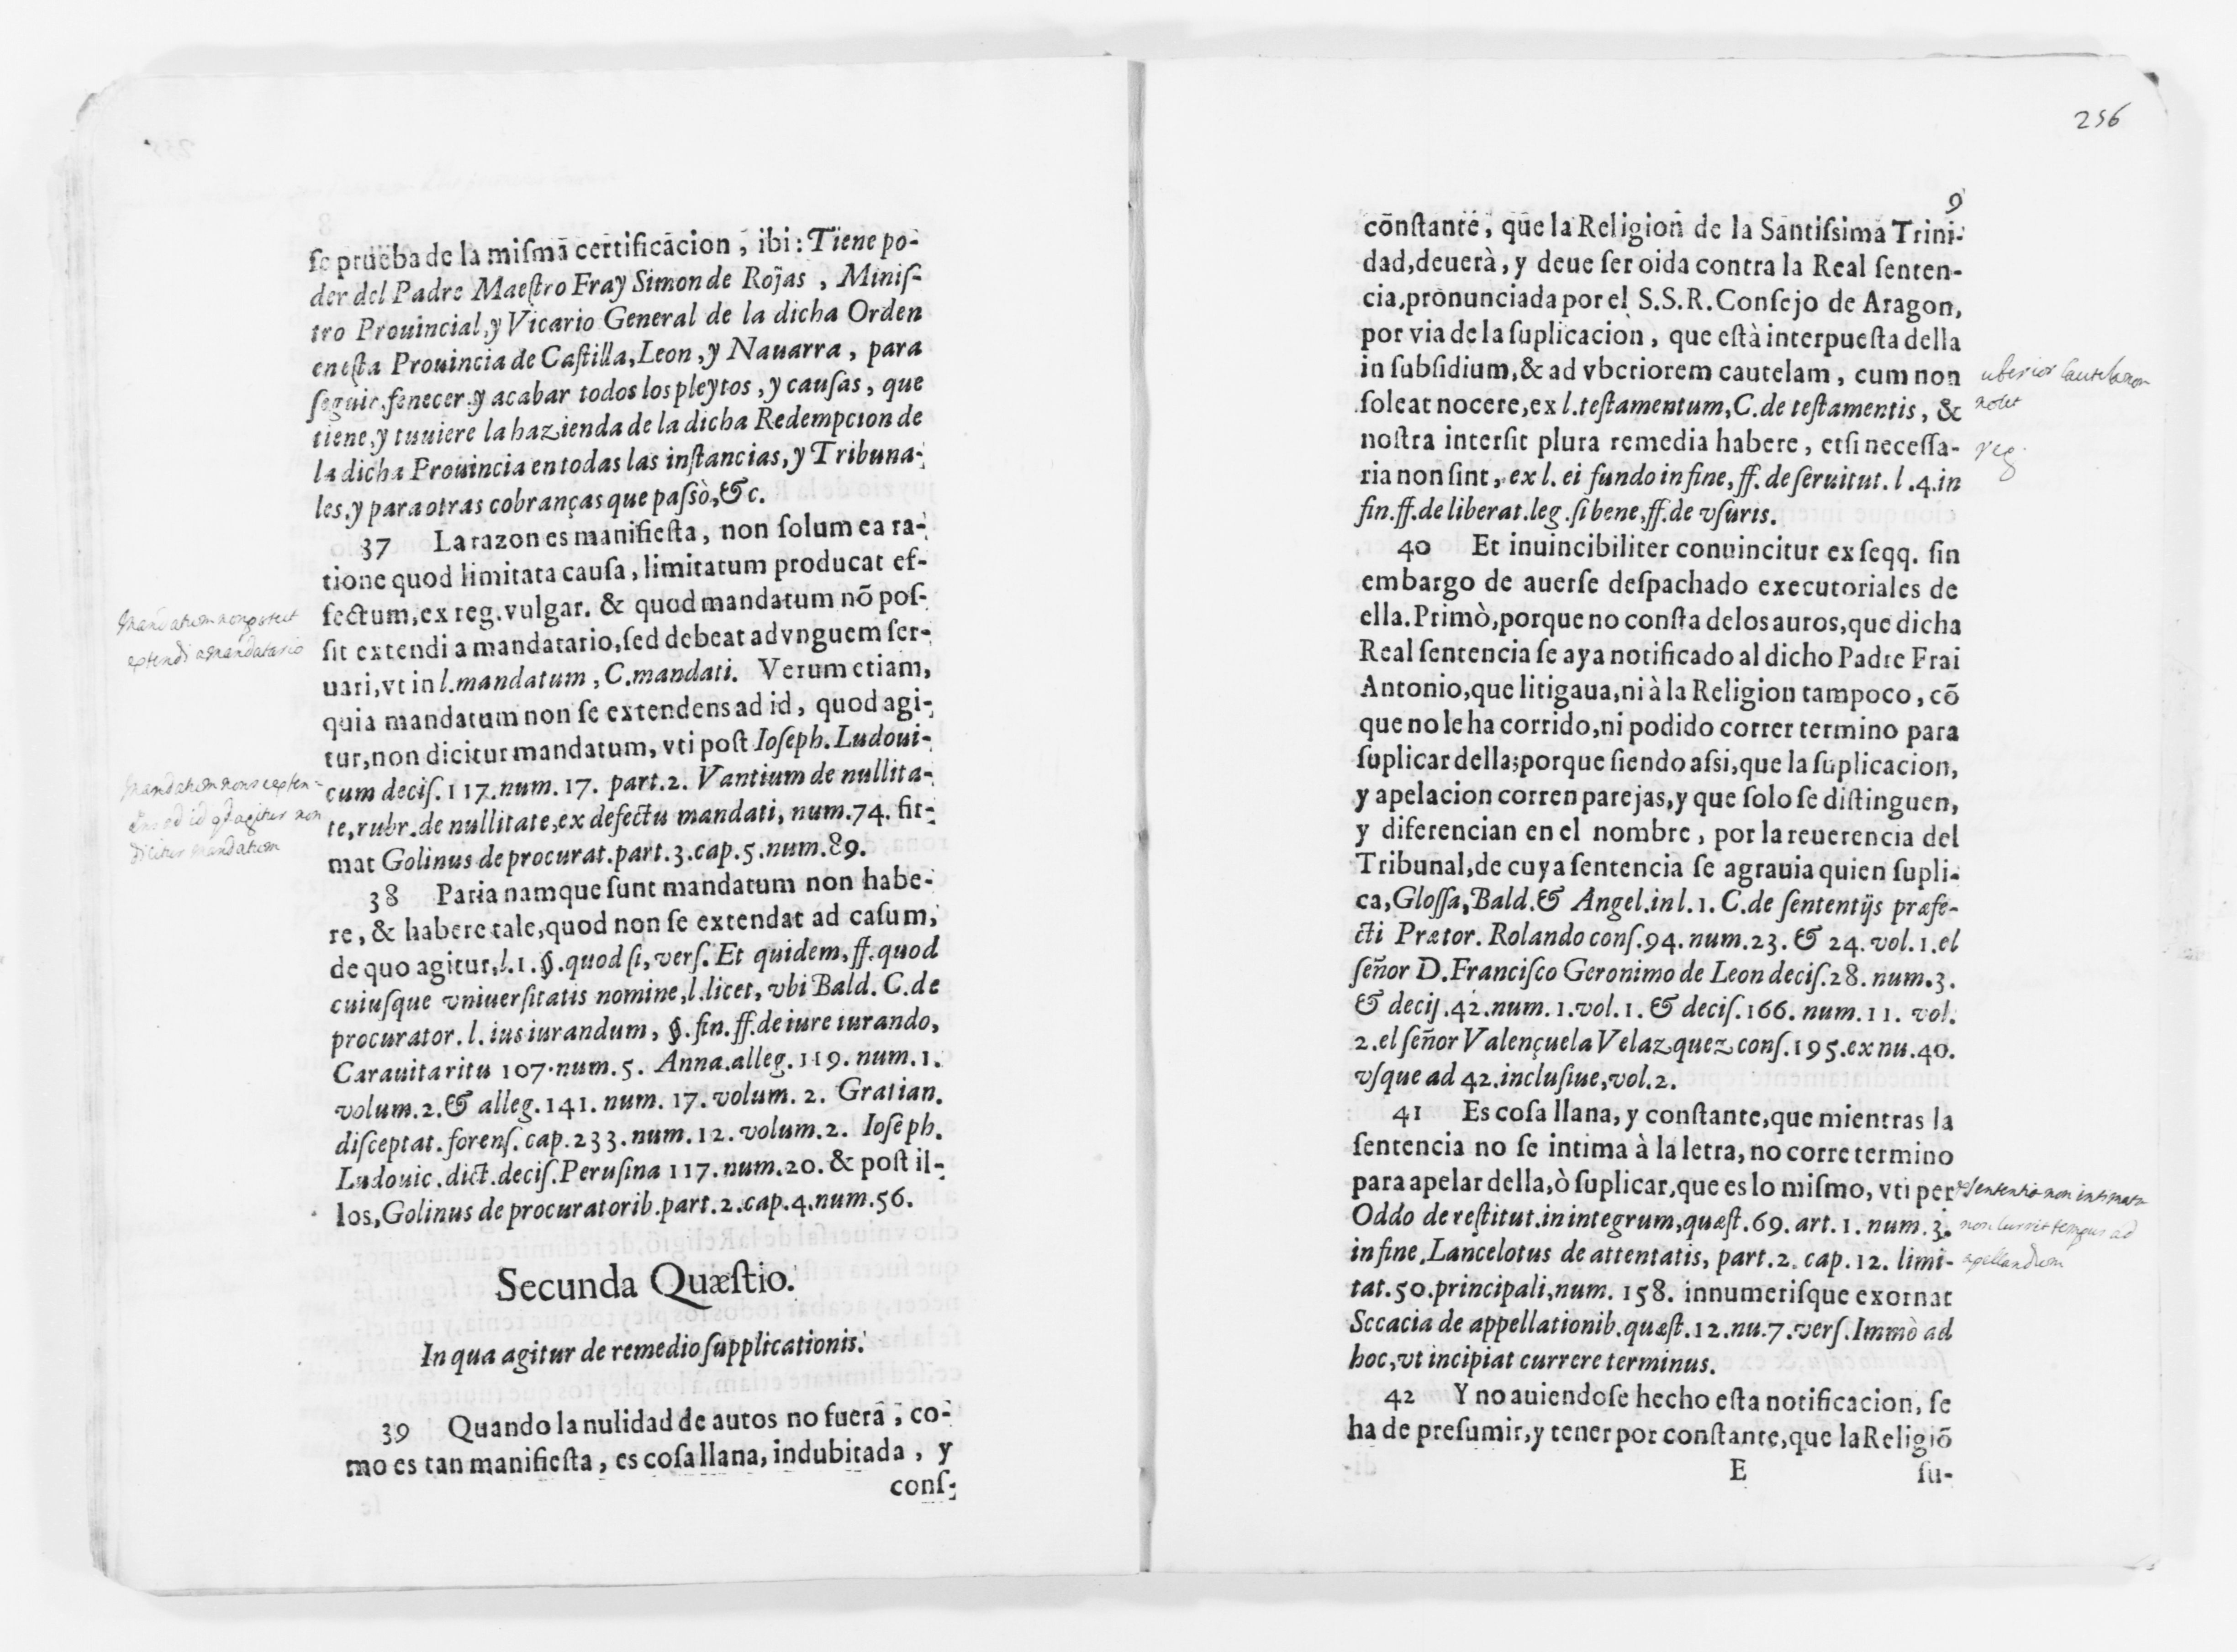 se prueba de la misma certificacion, ibi: Tiene po-
der del Padre Maestro Fray Simon de Rojas, Minis-
tro Prouincial, y Vicario General de la dicha Orden
en esta Prouincia de Castilla, Leon, y Nauarra, para
seguir, fenecer, y acabar todos los pleytos, y causas, que
tiene, y tuuiere la hazienda de la dicha Redempcion de
la dicha Prouincia en todas las instancias, y Tribuna-
les, y para otras cobranças que passò, &c.
37 La razon es manifiesta, non solum ea ra-
tione quod limitata causa, limitatum producat ef-
fectum, ex reg. vulgar. & quod mandatum nõ pos-
sit extendi a mandatario, sed debeat ad vnguem ser-
uari, vt in l. mandatum, C. mandati. Verum etiam,
quia mandatum non se extendens ad id, quod agi-
tur, non dicitur mandatum, vti post Ioseph. Ludoui-
cum decis. 117. num. 17. part. 2. Vantium de nullita-
te, rubr. de nullitate, ex defectu mandati, num. 74. fir-
mat Golinus de procurat. part. 3. cap. 5. num. 89.
38 Paria namque sunt mandatum non habe-
re, & habere tale, quod non se extendat ad casum,
de quo agitur, l. 1. §. quod si, vers. Et quidem, ff. quod
cuiusque vniuersitatis nomine, l. licet, vbi Bald. C. de
procurator. l. ius iurandum, §. fin. ff. de iure iurando,
Carauita ritu 107. num. 5. Anna. alleg. 119. num. 1.
volum. 2. & alleg. 141. num. 17. volum. 2. Gratian.
disceptat. forens. cap. 233. num. 12. volum. 2. Ioseph.
Ludouic. dict. decis. Perusina 117. num. 20. & post il-
los, Golinus de procuratorib. part. 2. cap. 4. num. 56.
Secunda Quæstio.
In qua agitur de remedio supplicationis.
39 Quando la nulidad de autos no fuera, co-
mo es tan manifiesta, es cosa llana, indubitada, y
cons-
mandatum non potest
extendi a mandatario
mandatum non se exten-
dens ad id qd agitur non
dicitur mandatum
256
9
cõnstante, que la Religion de la Santissima Trini-
dad, deuerà, y deue ser oida contra la Real senten-
cia, pronunciada por el S.S.R. Consejo de Aragon,
por via de la suplicacion, que està interpuesta della
in subsidium, & ad vberiorem cautelam, cum non
soleat nocere, ex l. testamentum, C. de testamentis, &
nostra intersit plura remedia habere, etsi necessa-
ria non sint, ex l. ei fundo in fine, ff. de seruitut. l. 4. in
fin. ff. de liberat. leg. si bene, ff. de vsuris.
40 Et inuincibiliter conuincitur ex seqq. sin
embargo de auerse despachado executoriales de
ella. Primò, porque no consta de los autos, que dicha
Real sentencia se aya notificado al dicho Padre Frai
Antonio, que litigaua, ni à la Religion tampoco, cõ
que no le ha corrido, ni podido correr termino para
suplicar della; porque siendo assi, que la suplicacion,
y apelacion corren parejas, y que solo se distinguen,
y diferencian en el nombre, por la reuerencia del
Tribunal, de cuya sentencia se agrauia quien supli-
ca, Glossa, Bald. & Angel. in l. 1. C. de sententijs præfe-
cti Prætor. Rolando cons. 94. num. 23. & 24. vol. 1. el
señor D. Francisco Geronimo de Leon decis. 28. num. 3.
& decis. 42. num. 1. vol. 1. & decis. 166. num. 11. vol.
2. el señor Valençuela Velazquez cons. 195. ex nu. 40.
vsque ad 42. inclusiue, vol. 2.
41 Es cosa llana, y constante, que mientras la
sentencia no se intima à la letra, no corre termino
para apelar della, ò suplicar, que es lo mismo, vti per
Oddo de restitut. in integrum, quæst. 69. art. 1. num. 3.
in fine, Lancelotus de attentatis, part. 2. cap. 12. limi-
tat. 50. principali, num. 158. innumerisque exornat
Sccacia de appellationib. quæst. 12. nu. 7. vers. Immò ad
hoc, vt incipiat currere terminus.
42 Y no auiendose hecho esta notificacion, se
ha de presumir, y tener por constante, que la Religiõ
E su-
uberior cautela non
nocet
reg.
sententia non intimata
non currit tempus ad
apellandum